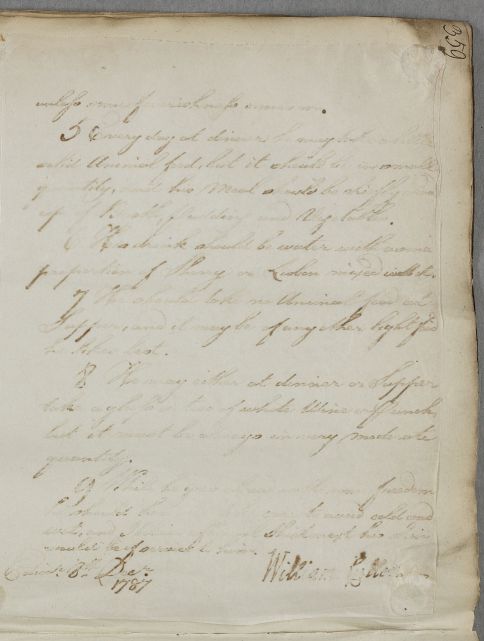 359
unless some feverishness comes on.
5 Every day at dinner he may take a little
solid Animal food, but it should be in small
quantity, and his Meal should be chiefly made
up of Broth, Pudding and Vegetables.
6 His drink should be water with some
proportion of Sherry or Lisbon mixed with it.
7 He should take no Animal food at
Supper, and it may be of any other light food
he likes best.
8 He may either at dinner or Supper
take a glass or two of white Wine or Punch,
but it must be always in very moderate
quantity.
9 While he goes abroad with some freedom
he should care to avoid cold and
wet, and
would be
8th Decr
1787 William Cullen